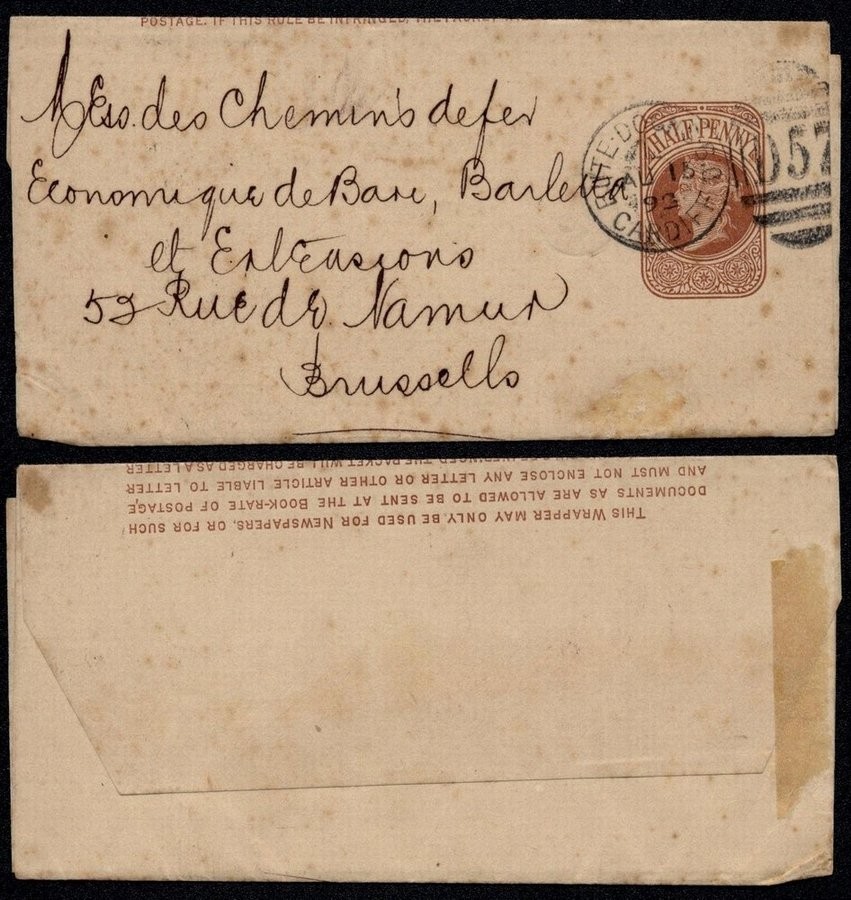 POSTAGE. IF THIS RULE BE INFRINGED, THE PACKET
Mess. des Chemins de fer
Economique de Bari, Barletta
et Extensions
53 Rue de Namur
Brussells
HALF PENNY
BUTE-DO
93
CARDIFF
057
THIS WRAPPER MAY ONLY BE USED FOR NEWSPAPERS, OR FOR SUCH
DOCUMENTS AS ARE ALLOWED TO BE SENT AT THE BOOK-RATE OF POSTAGE,
AND MUST NOT ENCLOSE ANY LETTER OR OTHER ARTICLE LIABLE TO LETTER
THE PACKET WILL BE CHARGED AS A LETTER